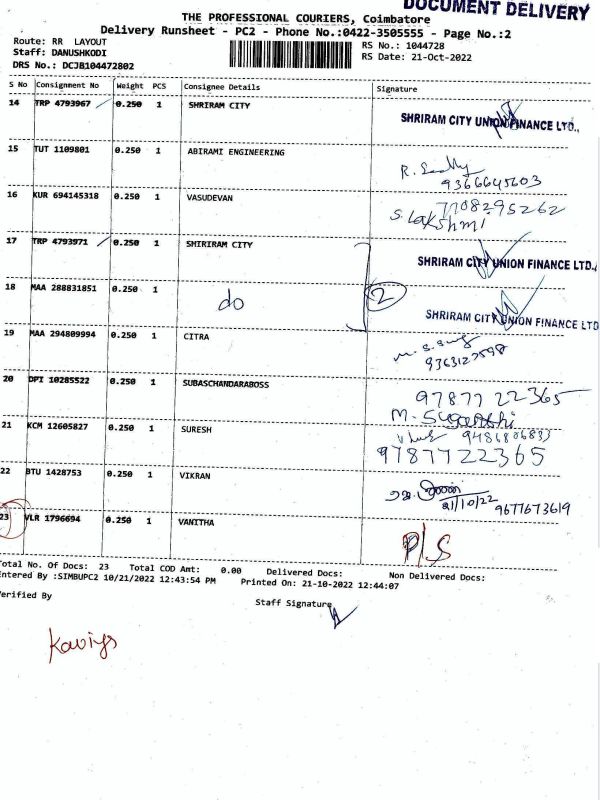 DOCUMENT DELIVERY
THE PROFESSIONAL COURIERS, Coimbatore
Delivery Runsheet - PC2 - Phone No.:0422-3505555 - Page No.:2
Route: RR LAYOUT
RS No.: 1044728
Staff: DANUSHKODI
RS Date: 21-Oct-2022
DRS No.: DCJB104472802
S No Consignment No Weight PCS Consignee Details Signature
14 TRP 4793967 0.250 1 SHRIRAM CITY
SHRIRAM CITY UNION FINANCE LTD.,
15 TUT 1109801 0.250 1 ABIRAMI ENGINEERING
9366645603
16 KUR 694145318 0.250 1 VASUDEVAN
7708295262
S. Lakshmi
17 TRP 4793971 0.250 1 SHIRIRAM CITY
SHRIRAM CITY UNION FINANCE LTD.,
18 MAA 288831851 0.250 1 do 2
SHRIRAM CITY UNION FINANCE LTD
19 MAA 294809994 0.250 1 CITRA
20 DPI 10285522 0.250 1 SUBASCHANDARABOSS
97877 22365
21 KCM 12605827 0.250 1 SURESH
9787722365
22 BTU 1428753 0.250 1 VIKRAN
21/10/22 9677673619
23 VLR 1796694 0.250 1 VANITHA
P/S
Total No. Of Docs: 23 Total COD Amt: 0.00 Delivered Docs: Non Delivered Docs:
Entered By :SIMBUPC2 10/21/2022 12:43:54 PM Printed On: 21-10-2022 12:44:07
Verified By
Staff Signature